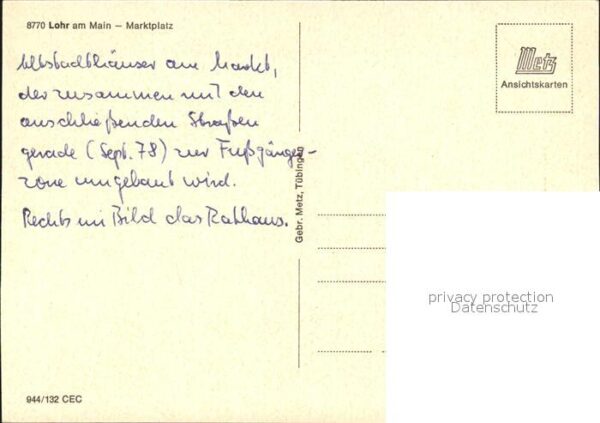 8770 Lohr am Main – Marktplatz
Altstadthäuser am Markt,
der zusammen mit den
anschließenden Straßen
gerade (Sept. 78) zur Fußgänger-
zone umgebaut wird.
Rechts im Bild das Rathaus.
944/132 CEC
Gebr. Metz, Tübingen
Metz
Ansichtskarten
privacy protection
Datenschutz